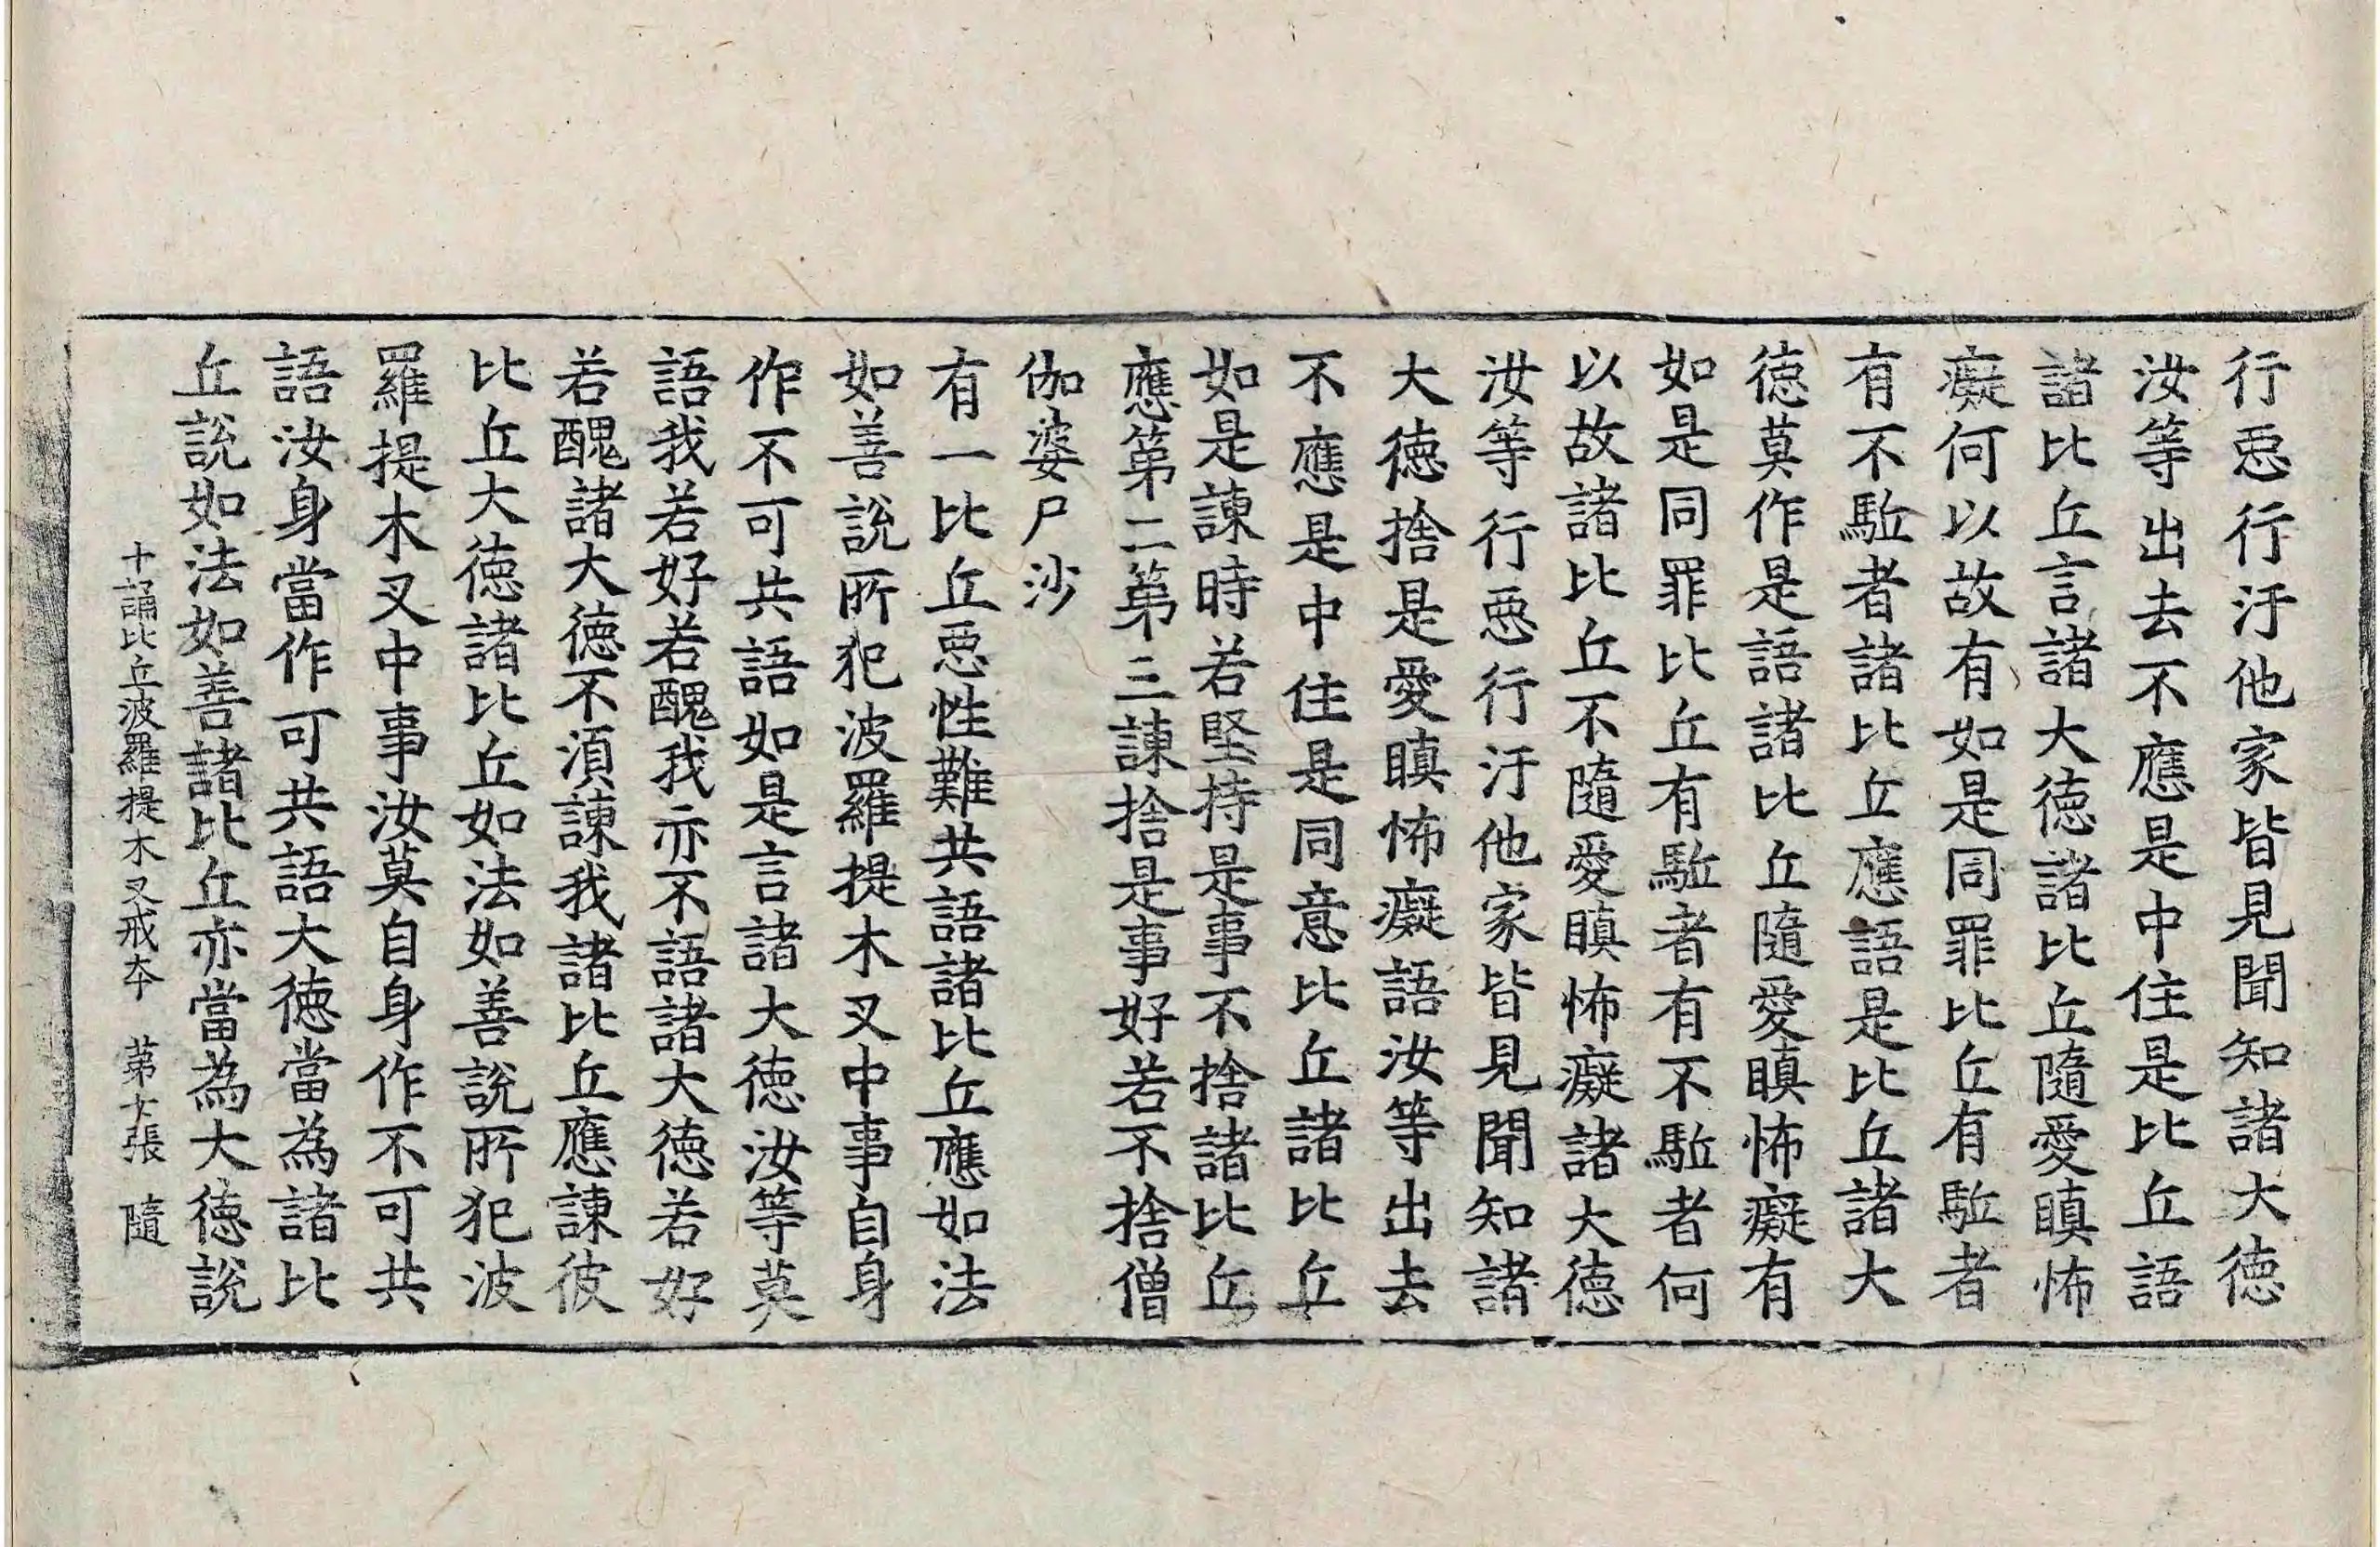 行惡行汙他家皆見聞知諸大徳
汝等出去不應是中住是比丘語
諸比丘言諸大徳諸比丘隨愛瞋怖
癡何以故有如是同罪比丘有駈者
有不駈者諸比丘應語是比丘諸大
徳莫作是語諸比丘隨愛瞋怖癡有
如是同罪比丘有駈者有不駈者何
以故諸比丘不隨愛瞋怖癡諸大徳
汝等行惡行汙他家皆見聞知諸
大徳捨是愛瞋怖癡語汝等出去
不應是中住是同意比丘諸比丘
如是諫時若堅持是事不捨諸比丘
應第二第三諫捨是事好若不捨僧
伽婆尸沙
有一比丘惡性難共語諸比丘應如法
如善說所犯波羅提木叉中事自身
作不可共語如是言諸大徳汝等莫
語我若好若醜我亦不語諸大徳若好
若醜諸大徳不湏諫我諸比丘應諫彼
比丘大徳諸比丘如法如善說所犯波
羅提木叉中事汝莫自身作不可共
語汝身當作可共語大徳當為諸比
丘說如法如善諸比丘亦當為大徳說
十誦比丘波羅提木叉戒夲 第七張 隨